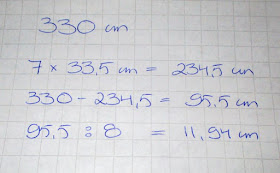 330 cm
7 × 33,5 cm = 234,5 cm
330 - 234,5 = 95,5 cm
95,5 : 8 = 11,94 cm